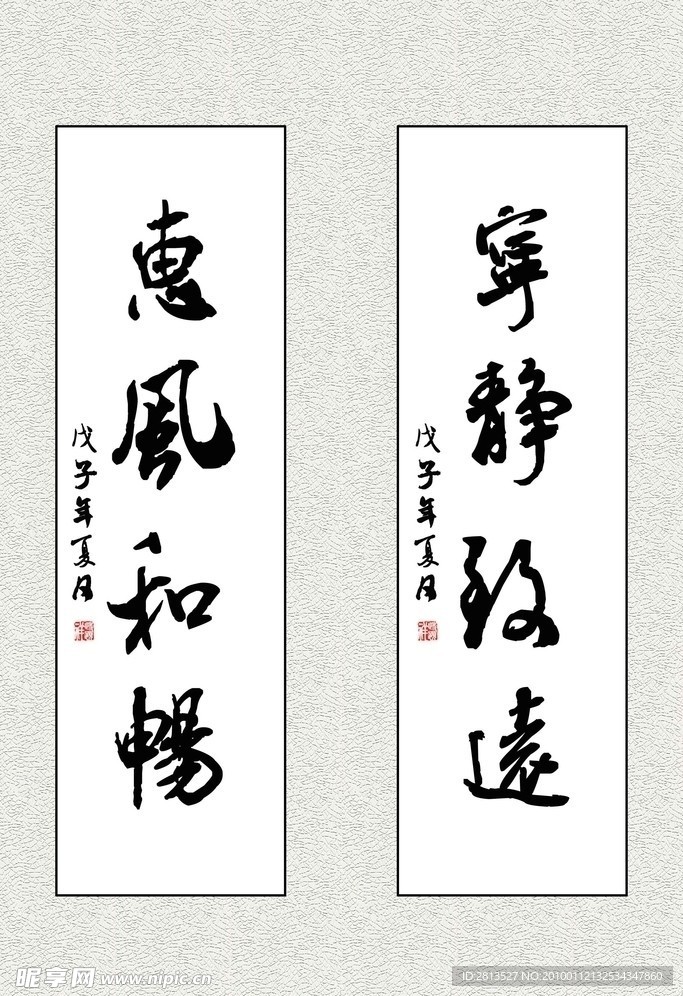 寧靜致遠
戊子年夏月
惠風和暢
戊子年夏月
昵享网 www.nipic.cn
ID:2813527 NO:20100112132534347860